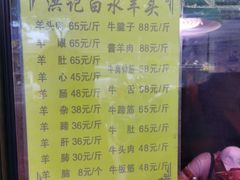 洪记白水羊头
羊头肉 65元/斤
羊 眼 65元/斤
羊 肚 65元/斤
羊 心 45元/斤
羊 肠 48元/斤
羊 杂 38元/斤
羊 蹄 36元/斤
羊 肝 36元/斤
羊 肺 30元/斤
羊 脑 8元/个
牛腱子 88元/斤
酱羊肉 88元/斤
牛 舌 88元/斤
牛蹄筋 65元/斤
牛 肚 65元/斤
牛头肉 48元/斤
牛板筋 48元/斤